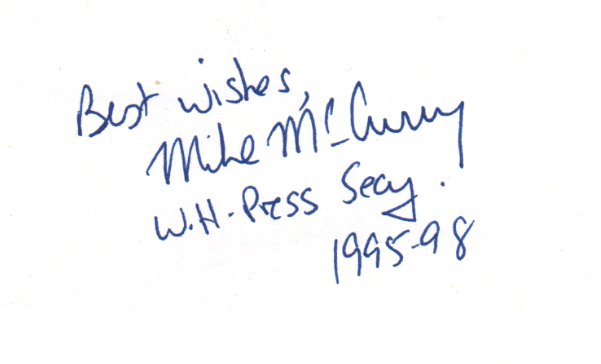 Best wishes,
Mike McCurry
W.H. Press Secy.
1995-98